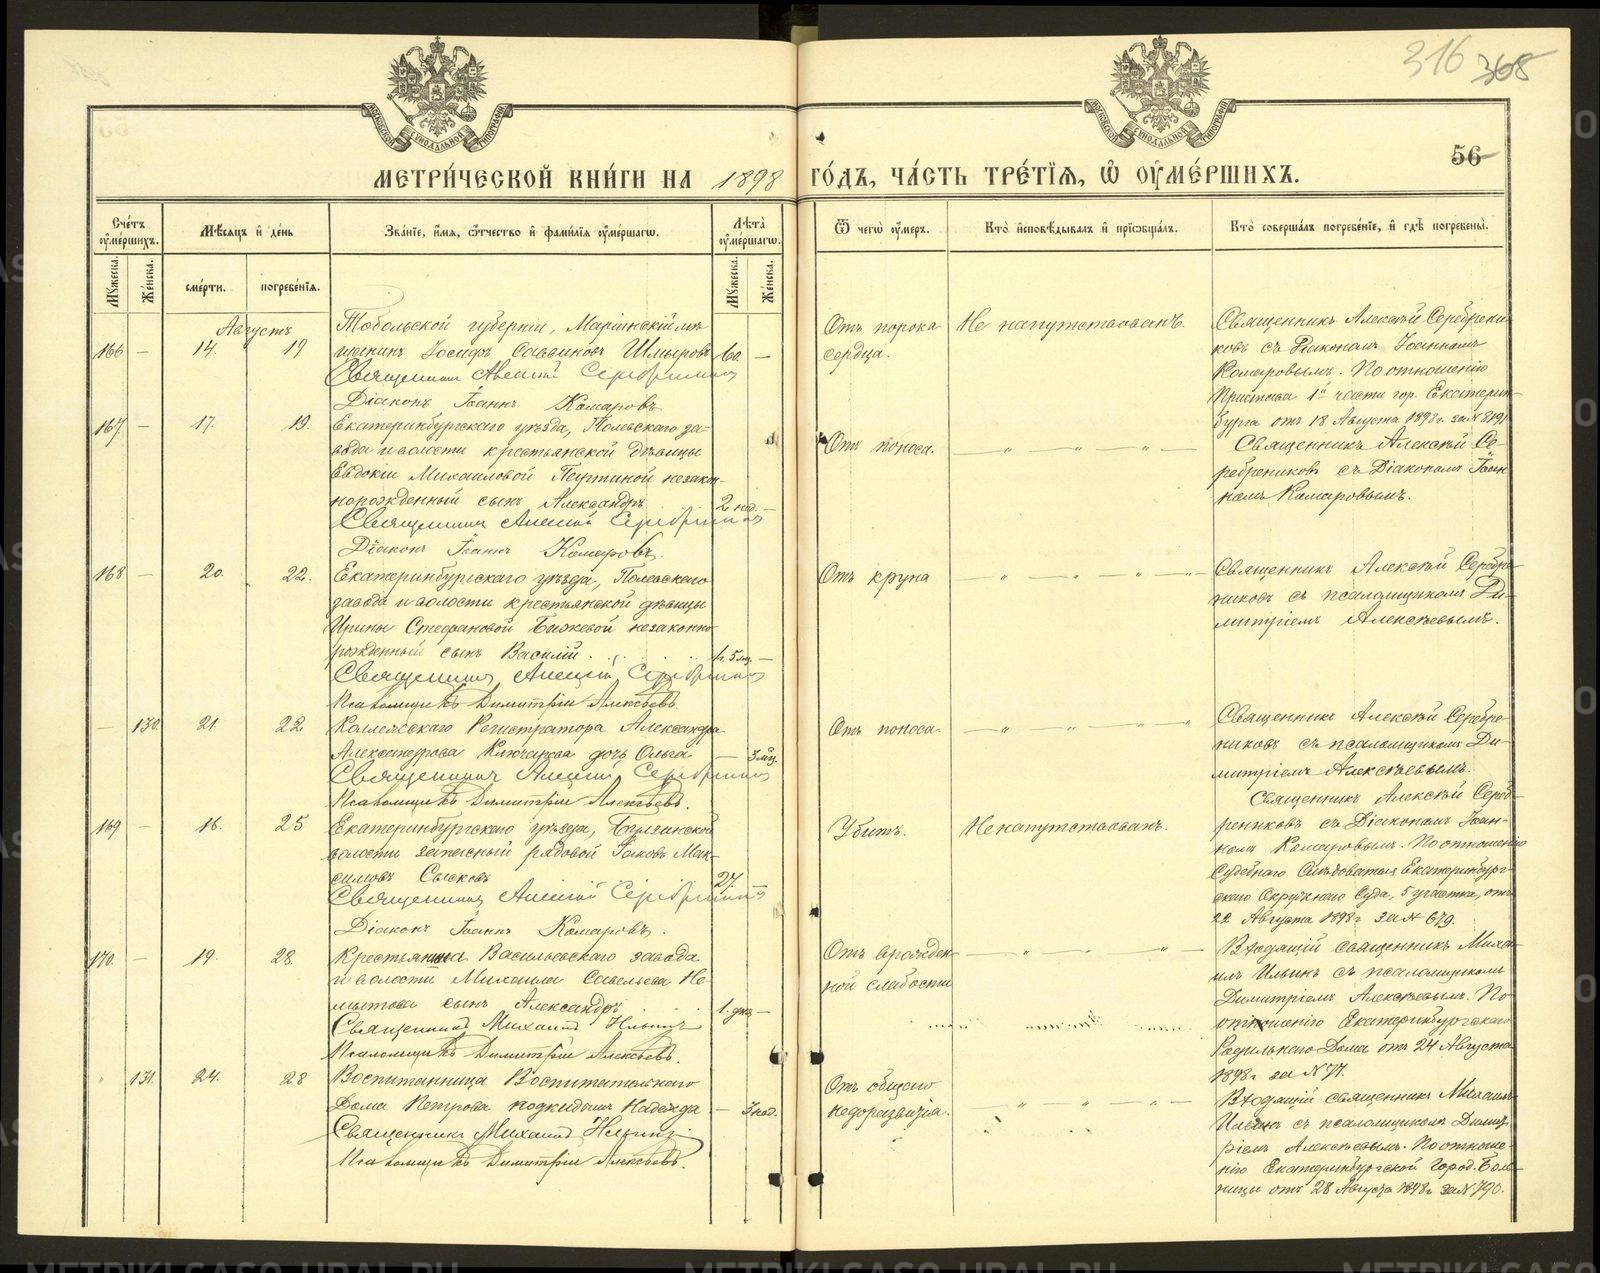 316 368
56
МЕТРИ́ЧЕСКОЙ КНИ́ГИ НА 1898 ГО́ДЪ, ЧА́СТЬ ТРЕ́ТІЯ, Ѽ ОУ҆МЕ́РШИХЪ.
Сче́тъ оу҆ме́ршихъ.
Мѣ́сяцъ и҆ де́нь
Зва́нїе, и҆́мя, ѻ҆́тчество и҆ фамі́лїя оу҆ме́ршагѡ.
Лѣта̀ оу҆ме́ршагѡ.
Ѿ чегѡ̀ оу҆́меръ.
Кто̀ и҆сповѣ́дывалъ и҆ прїѡбща́лъ.
Кто̀ соверша́лъ погребе́нїе, и҆ гдѣ̀ погребены̀.
Мꙋ́жеска.
Же́нска.
сме́рти.
погребе́нїя.
Мꙋ́жеска.
Же́нска.
Августъ
Тобольской губерніи, Маріинскій мѣ-
166 — 14. 19 щанинъ Іосифъ Саввиновъ Шмыровъ 60. —
Священникъ Алексій Серебрениковъ
Діаконъ Іоаннъ Комаровъ
Отъ порока
сердца.
Не напутствованъ.
Священникъ Алексѣй Серебрени-
ковъ съ Діакономъ Іоанномъ
Комаровымъ. По отношенію
Пристава 1й части гор. Екатерин-
бурга отъ 18 Августа 1898 г. за №
167. — 17. 19. Екатеринбургскаго уѣзда, Полевскаго за-
вода и волости крестьянской дѣвицы
Евдокіи Михаиловой незакон-
норожденный сынъ Александръ 2 нед. —
Священникъ Алексій Серебрениковъ
Діаконъ Іоаннъ Комаровъ.
Отъ поноса.
— " — " — " —
Священникъ Алексѣй Се-
ребрениковъ съ Діакономъ Іоан-
номъ Комаровымъ.
168 — 20. 22. Екатеринбургскаго уѣзда, Полевскаго
завода и волости крестьянской дѣвицы
Ирины Стефановой незаконно-
рожденный сынъ Василій 1 г. 5 мц. —
Священникъ Алексій Серебрениковъ
Псаломщикъ Димитрій Алексѣевъ.
Отъ крупа
— " — " — " — " —
Священникъ Алексѣй Серебре-
никовъ съ псаломщикомъ Ди-
митріемъ Алексѣевымъ.
— 130. 21. 22 Коллежскаго Регистратора Александра
Александрова Ключарева дочь Ольга — 3 мц.
Священникъ Алексій Серебрениковъ
Псаломщикъ Димитрій Алексѣевъ.
Отъ поноса.
— " — " — " — "
Священникъ Алексѣй Серебре-
никовъ съ псаломщикомъ Ди-
митріемъ Алексѣевымъ.
169 — 16. 25 Екатеринбургскаго уѣзда,
волости запасный рядовой Іаковъ Мак-
симовъ Сысковъ 27. —
Священникъ Алексій Серебрениковъ
Діаконъ Іоаннъ Комаровъ.
Убитъ.
Не напутствованъ.
Священникъ Алексѣй Сереб-
рениковъ съ Діакономъ Іоан-
номъ Комаровымъ. По отношенію
Судебнаго Слѣдователя Екатеринбург-
скаго Окружнаго Суда, 5 участка, отъ
22 Августа 1898 г за № 679.
170. — 19. 28. Крестьянина Васильевскаго завода
и волости Михаила Савельева Не-
мытова сынъ Александръ 1. дн. —
Священникъ Михаилъ Ильинъ
Псаломщикъ Димитрій Алексѣевъ.
Отъ врожден-
ной слабости
— " — " — " —
Входящій священникъ Миха-
илъ Ильинъ съ псаломщикомъ
Димитріемъ Алексѣевымъ. По
отношенію Екатеринбургскаго
Родильнаго Дома отъ 24 Августа
1898 г за № 77.
" 131. 24. 28 Воспитанница Воспитательнаго
Дома Петрова подкидышъ Надежда — 3 нед.
Священникъ Михаилъ Ильинъ
Псаломщикъ Димитрій Алексѣевъ.
Отъ общаго
недоразвитія.
— " — " — " —
Входящій священникъ Михаилъ
Ильинъ съ псаломщикомъ Димит-
ріемъ Алексѣевымъ. По отноше-
нію Екатеринбургской Город. Боль-
ницы отъ 28 Августа 1898 г за № 790.